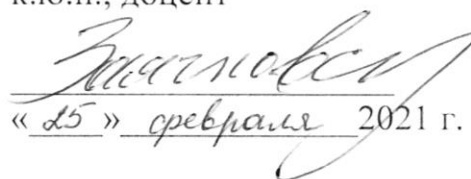 к.ю.н., доцент
« 25 » февраля 2021 г.